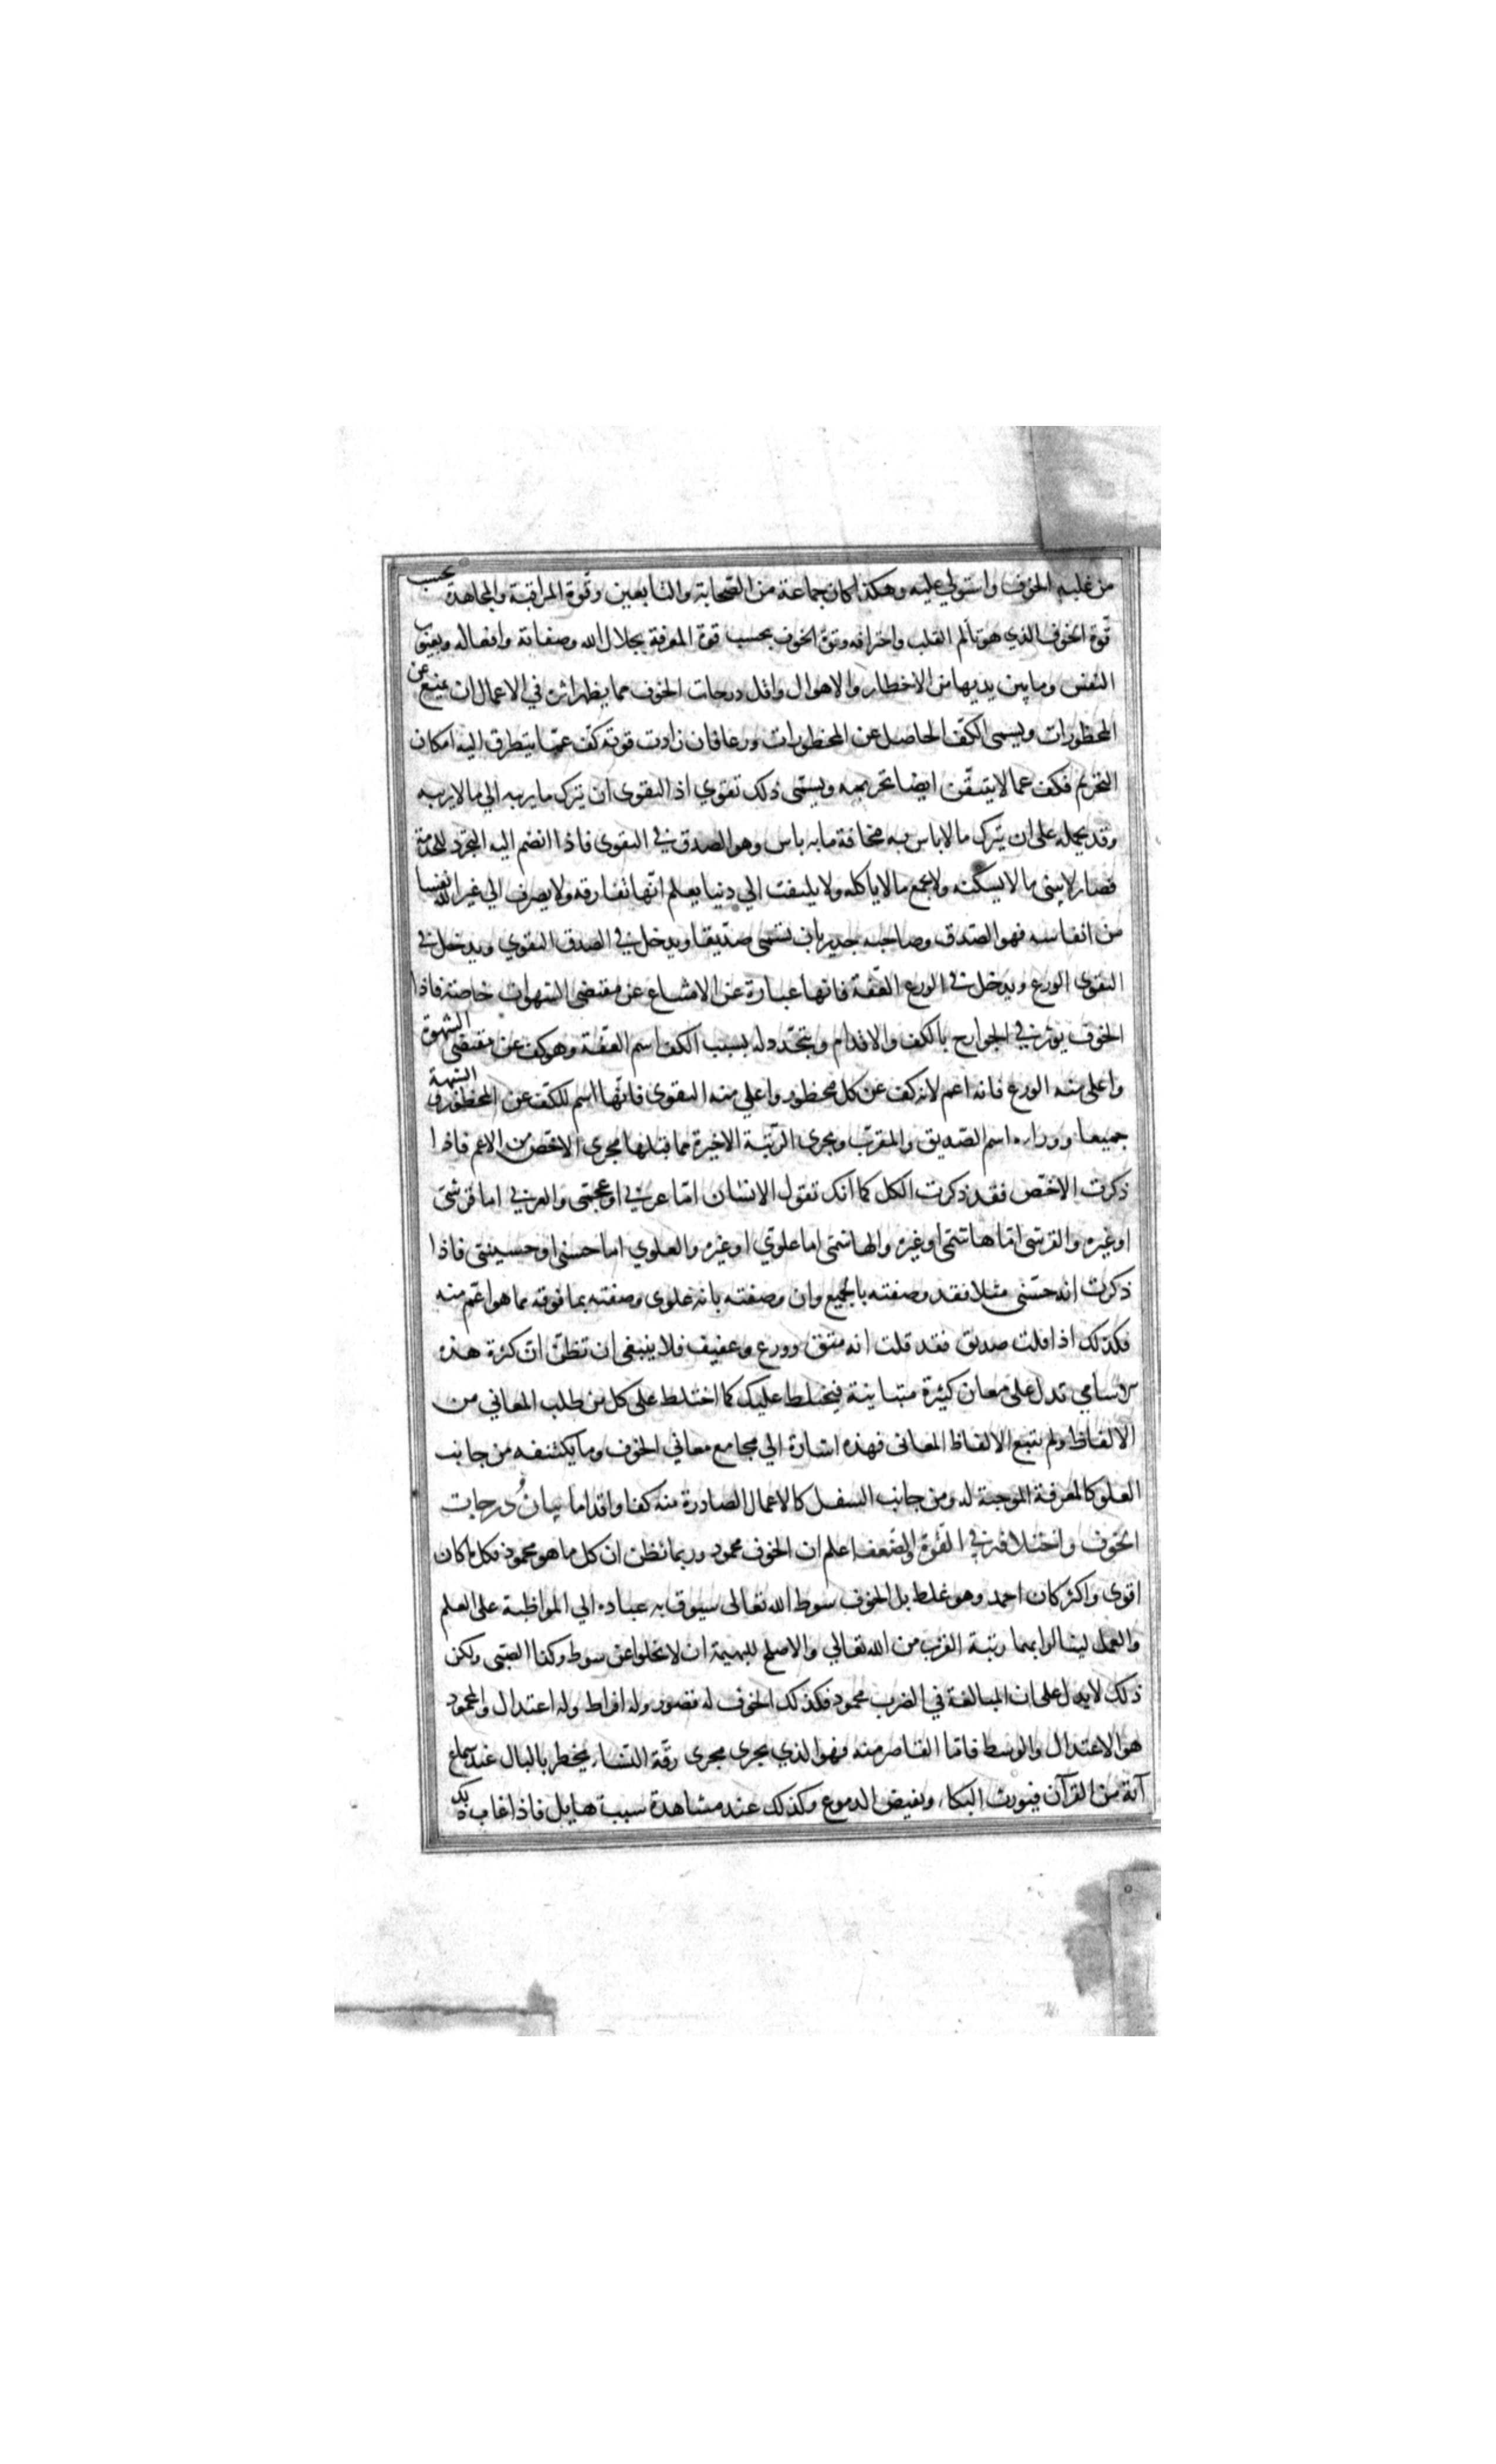 من غلبه الخوف واستولي عليه وهكذا كان جماعة من الصّحابة والتابعين وقوة المراقبة والمجاهدة بحسب
قوّة الخوف الذي هو تألم القلب واحتراقه وقوة الخوف بحسب قوة المعرفة بجلال الله وصفاته وافعاله وبعيوب
النفس وما بين يديها من الاخطار والاهوال واقل درجات الخوف مما يظهر اثره في الاعمال ان يمنع عن
المحظورات ويسمى الكفّ الحاصل عن المحظورات ورعا فان زادت قوته كفّ عمّا يتطرق اليه امكان
التحريم فكف عما لا يتيقّن ايضا تحريمه ويسمّى ذلك تقوي اذ التقوى ان يترك ما يريبه الي ما لا يريبه
وقد يحمله على ان يترك ما لا باس به مخافة ما به باس وهو الصدق في التقوى فاذا انضم اليه التجرّد للخدمة
فصار لا يبنى ما لا يسكنه ولا يجمع ما لا ياكله ولا يلتفت الي دنيا يعلم انّها تفارقه ولا يصرف الي غير الله نفسا
من انفاسه فهو الصّدق وصاحبه جدير بان يسمّى صدّيقا ويدخل في الصدق التقوي ويدخل في
التقوى الورع ويدخل في الورع العفّة فانها عبارة عن الامتناع عن مقتضى الشهوات خاصة فاذا
الخوف يوثر في الجوارح بالكف والاقدام ويتجدّد له بسبب الكف اسم العفّة وهو كف عن مقتضى الشهوة
واعلى منه الورع فانه اعم لانه كف عن كل محظور واعلي منه التقوى فانّها اسم للكفّ عن المحظور و الشبهة
جميعا ووراءه اسم الصّديق والمقرّب ويجري الرّتبة الاخيرة مما قبلها مجرى الاخصّ من الاعم فاذا
ذكرت الاخصّ فقد ذكرت الكل كما انك تقول الانسان امّا عربي او عجمّى والعربي اما قرشىّ
او غيره والقرشى امّا هاشمّى او غيره والهاشمّى اما علويّ او غيره والعلوي اما حسنى او حسينىّ فاذا
ذكرت انه حسّنى مثلا فقد وصفته بالجميع وان وصفته بانه علوى وصفته بما فوقه مما هو اعمّ منه
فكذلك اذا قلت صديق فقد قلت انه متق وورع وعفيف فلا ينبغى ان تظنّ انّ كثرة هذه
الاسامي تدل على معان كثيرة متباينة فيختلط عليك كما اختلط على كل من طلب المعاني من
الالفاظ ولم يتبع الالفاظ المعانى فهذه اشارة الي مجامع معاني الخوف وما يكتنفه من جانب
العلو كالمعرفة الموجبة له ومن جانب السفل كالاعمال الصادرة منه كفا واقداما بيان درجات
الخوف واختلافه في القوّة والضّعف اعلم ان الخوف محمود وربما تظن ان كل ما هو محمود فكل ما كان
اقوى واكثر كان احمد وهو غلط بل الخوف سوط الله تعالى يسوق به عباده الي المواظبة على العلم
والعمل لينالوا بهما رتبة القرب من الله تعالي والاصلح للبهيمة ان لا تخلوا عن سوط وكذا الصّبى ولكن
ذلك لا يدل على ان المبالغة في الضرب محمود فكذلك الخوف له قصور وله افراط وله اعتدال والمحمود
هو الاعتدال والوسط فامّا القاصر منه فهو الذي يجرى مجرى رقّة النّساء يخطر بالبال عند سماع
آية من القرآن فيورث البكاء ويفيض الدموع وكذلك عند مشاهدة سبب هايل فاذا غاب ذلك